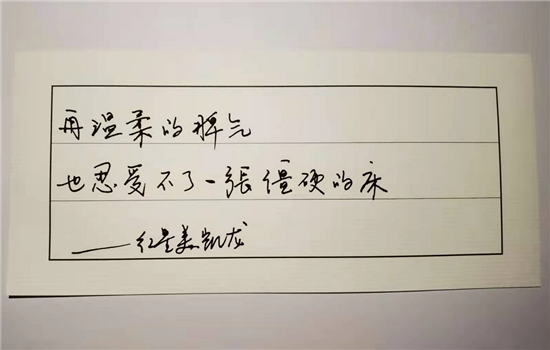 再温柔的脾气
也忍受不了一张僵硬的床
——红星美凯龙